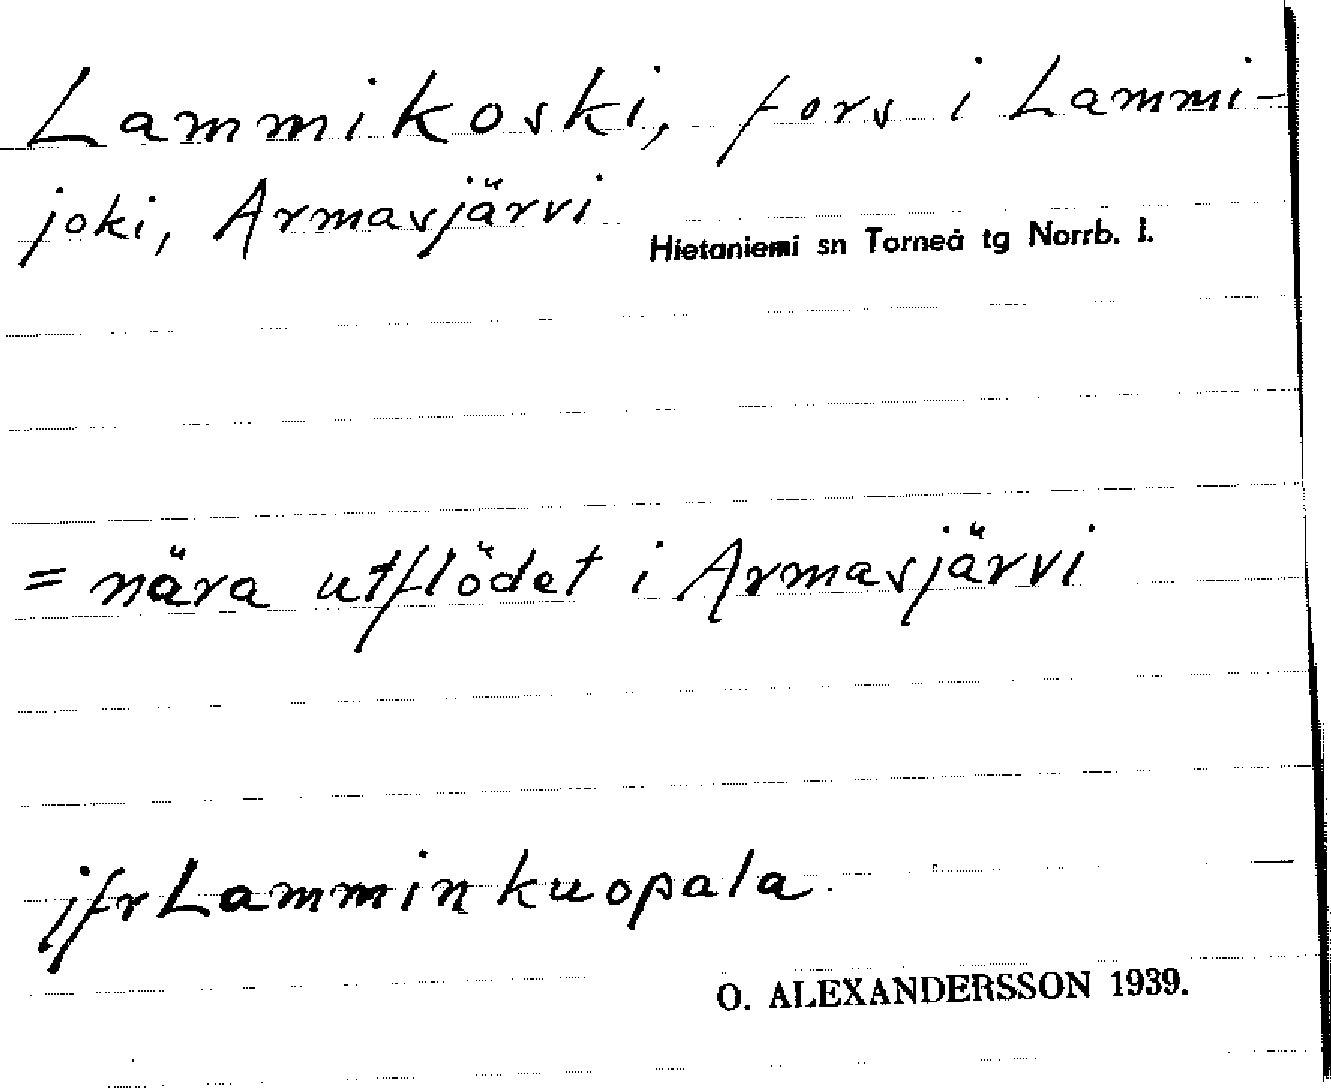 Lammikoski, fors i Lammi-
joki, Armasjärvi
Hietaniemi sn Torneå tg Norrb. l.
= nära utflödet i Armasjärvi
jfr Lamminkuopala.
O. ALEXANDERSSON 1939.